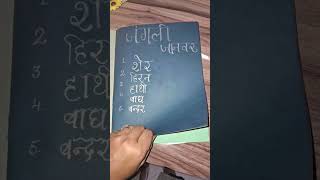 जंगली
जानवर
1. शेर
2. हिरन
3. हाथी
4. बाघ
5. बन्दर